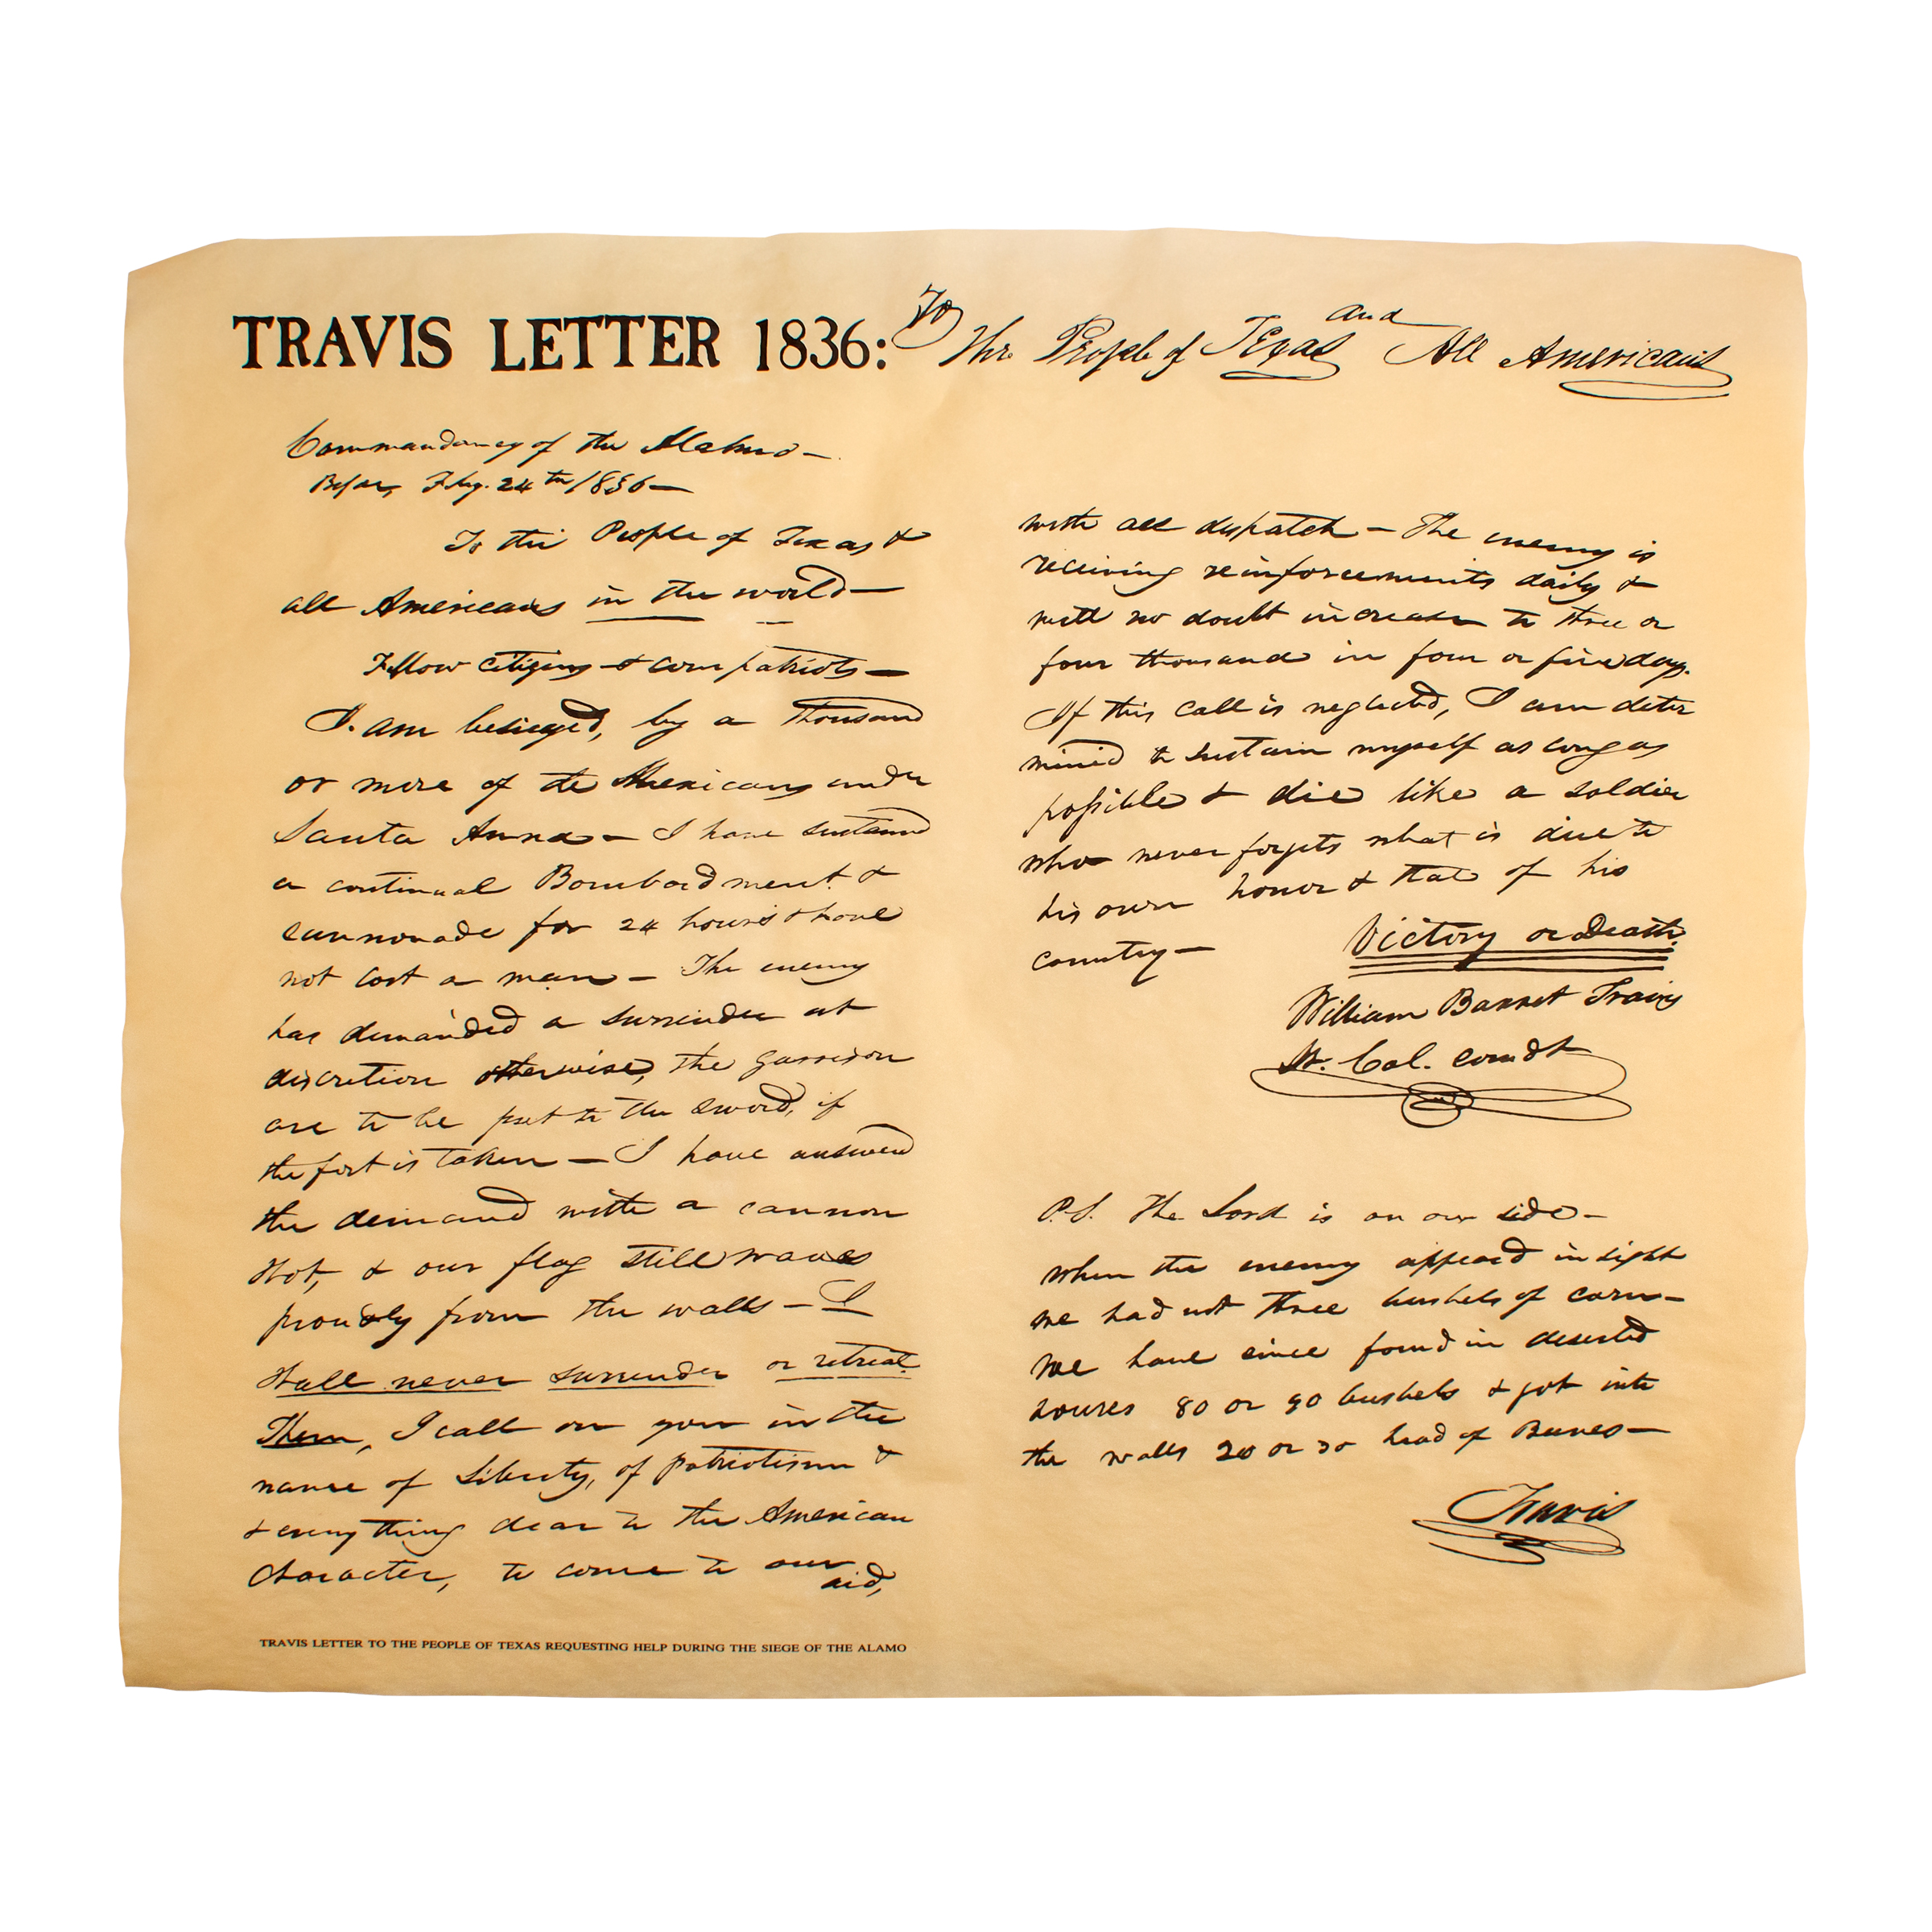 TRAVIS LETTER 1836: To The People of Texas and All Americans
Commandancy of the Alamo—
Bejar, Feby. 24th 1836—
To the People of Texas &
all Americans in the world—
Fellow citizens & compatriots—
I am besieged, by a thousand
or more of the Mexicans under
Santa Anna— I have sustained
a continual Bombardment &
cannonade for 24 hours & have
not lost a man— The enemy
has demanded a surrender at
discretion otherwise, the garrison
are to be put to the sword, if
the fort is taken— I have answered
the demand with a cannon
shot, & our flag still waves
proudly from the walls— I
shall never surrender or retreat.
Then, I call on you in the
name of Liberty, of patriotism &
& everything dear to the American
character, to come to our
aid,
with all dispatch— The enemy is
receiving reinforcements daily &
will no doubt increase to three or
four thousand in four or five days.
If this call is neglected, I am deter
mined to sustain myself as long as
possible & die like a soldier
who never forgets what is due to
his own honor & that of his
country—
Victory or Death.
William Barret Travis
Lt. Col. comdt
P.S. The Lord is on our side—
When the enemy appeared in sight
we had not three bushels of corn—
We have since found in deserted
houses 80 or 90 bushels & got into
the walls 20 or 30 head of Beeves—
Travis
TRAVIS LETTER TO THE PEOPLE OF TEXAS REQUESTING HELP DURING THE SIEGE OF THE ALAMO